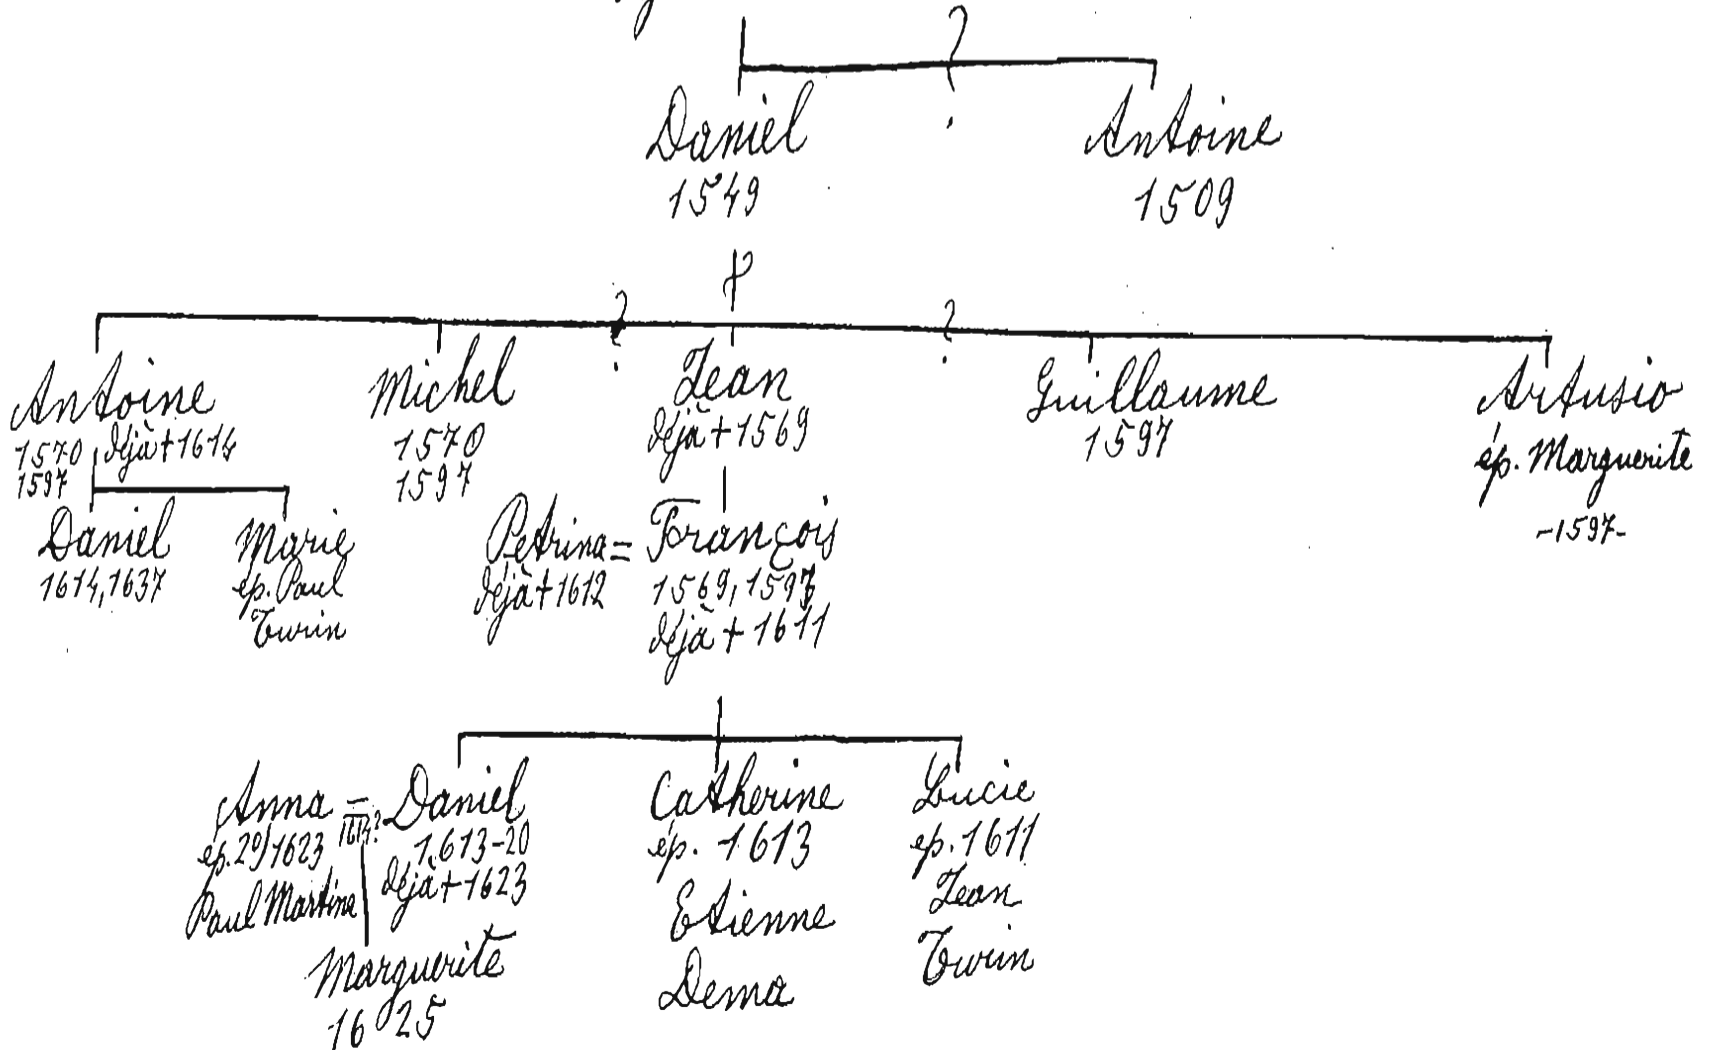 ?
Daniel
1549
Antoine
1509
?
?
?
Antoine
1570 déjà + 1614
1597
Michel
1570
1597
Jean
déjà + 1569
Guillaume
1597
Artusio
ép. Marguerite
-1597-
Daniel
1614, 1637
Marie
ép. Paul
Turin
Petrina =
déjà + 1612
François
1569, 1597
déjà + 1611
Anna =
ép. 2º/1623
Paul Martine
Daniel
1613-20
déjà + 1623
Catherine
ép. 1613
Etienne
Dema
Lucie
ép. 1611
Jean
Turin
Marguerite
1625